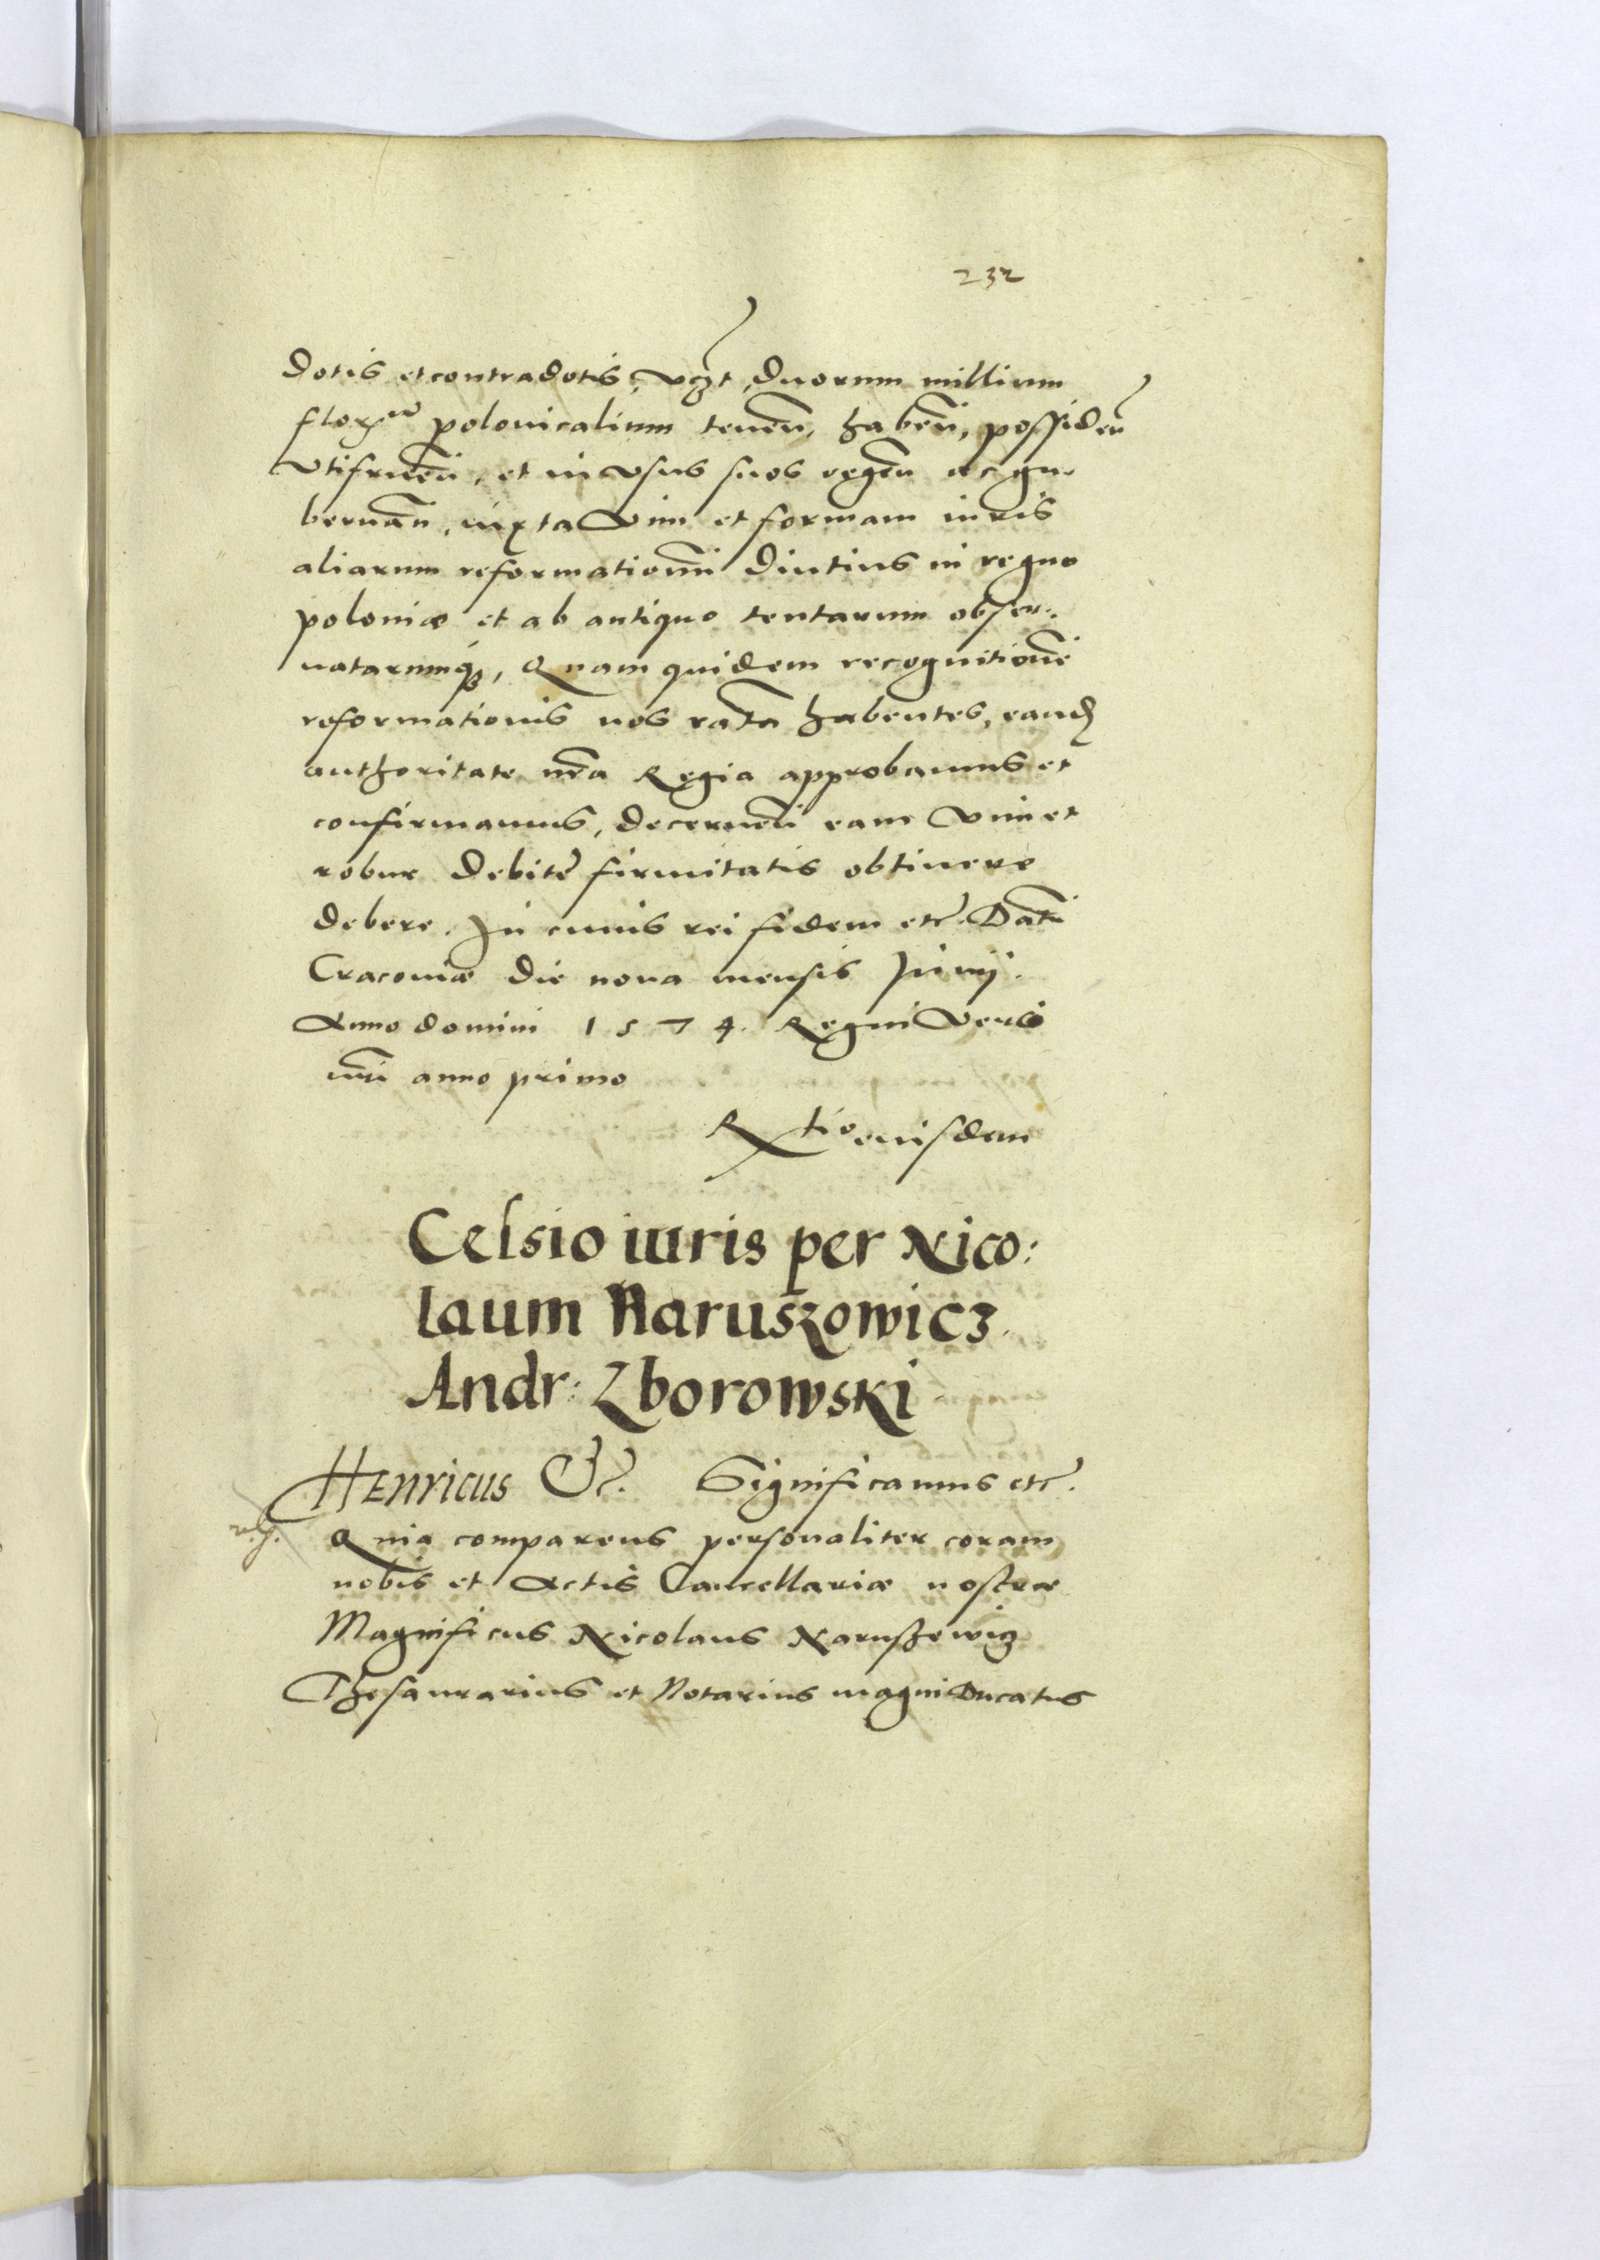 232
dotis et contradotis, vczt, duorum millium
florᵘᵐ polonicalium tenen̄, haben̄, possiden̄
Vtifruen̄, et in vsus suos regen̄ ac gu-
bernan̄, iuxta vim et formam iuris
aliarum reformationū diutius in regno
poloniæ et ab antiquo tentarum obser-
uatarumq3, Quam quidem recognitionē
reformationis nos ratā habentes, eand
authoritate nr̄a Regia approbamus et
confirmamus, decernen̄ eam vim et
robur debitē firmitatis obtinere
debere. In cuius rei fidem etc̄. Datū
Cracouiæ die nona mensis Junij.
Anno domini 1574. Regni vero
nr̄i anno primo
Rtio eiusdem
Celsio iuris per Nico:
laum Naruszowicz
Andr: Zborowski
Henricus &c. Significamus etc̄.
Quia comparens personaliter coram
nobis et Actis Cancellariæ nostræ
Magnificus Nicolaus Naruszewicz
Thesaurarius et Notarius magni Ducatus